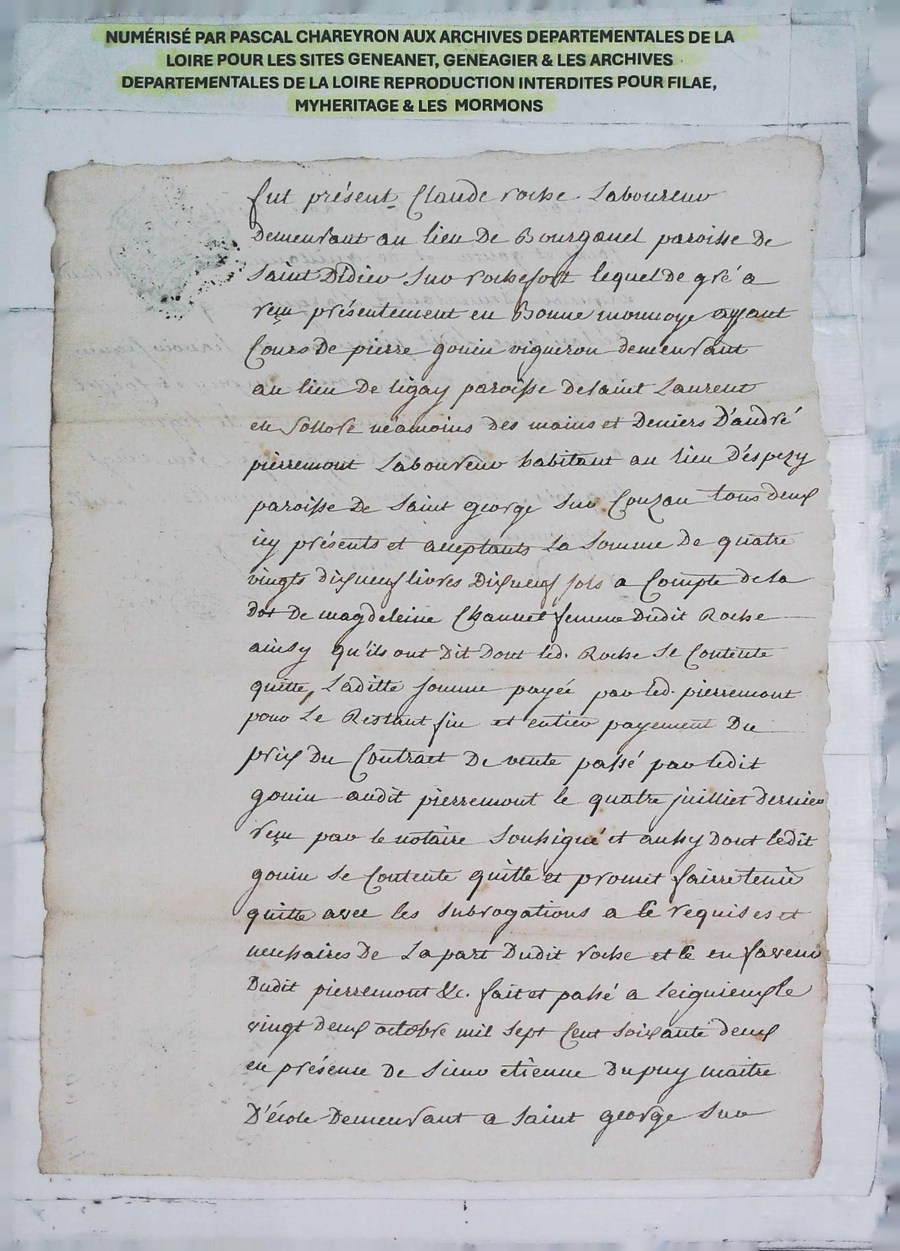 NUMÉRISÉ PAR PASCAL CHAREYRON AUX ARCHIVES DEPARTEMENTALES DE LA
LOIRE POUR LES SITES GENEANET, GENEAGIER & LES ARCHIVES
DEPARTEMENTALES DE LA LOIRE REPRODUCTION INTERDITES POUR FILAE,
MYHERITAGE & LES MORMONS
fut présent Claude roche Laboureur
Demeurant au lieu De Bourganel paroisse de
Saint Didier Sur rochefort lequel de gré a
reçu présentement en Bonne monnoye ayant
Cours De pierre gouin vigneron demeurant
au lieu De ligay paroisse de saint Laurent
en Sollore néamoins des mains et Deniers D'andré
pierremont Laboureur habitant au lieu D'espezy
paroisse De Saint george Sur Couzan tous deux
icy présents et acceptants La Somme De quatre
vingts dixneuf livres Dixneuf sols a Compte de la
Dot De magdeleine Chaunel femme Dudit Roche
ainsy qu'ils ont Dit Dont led. Roche Se Contente
quitte, Laditte somme payée par led. pierremont
pour Le Restant fin et entier payement Du
prix Du Contract De vente passé par ledit
gouin audit pierremont le quatre juilliet dernier
reçu par le notaire Soussigné et aussy Dont ledit
gouin Se Contente quitte et promet fairre tenir
quitte avec les Subrogations a Ce réquises et
necessaires De La part Dudit roche et Ce en faveur
Dudit pierremont &c. fait et passé a leignieux le
vingt deux octobre mil sept Cent soixante deux
en présence De Sieur etienne Dupuy maitre
D'école Demeurant a Saint george Sur